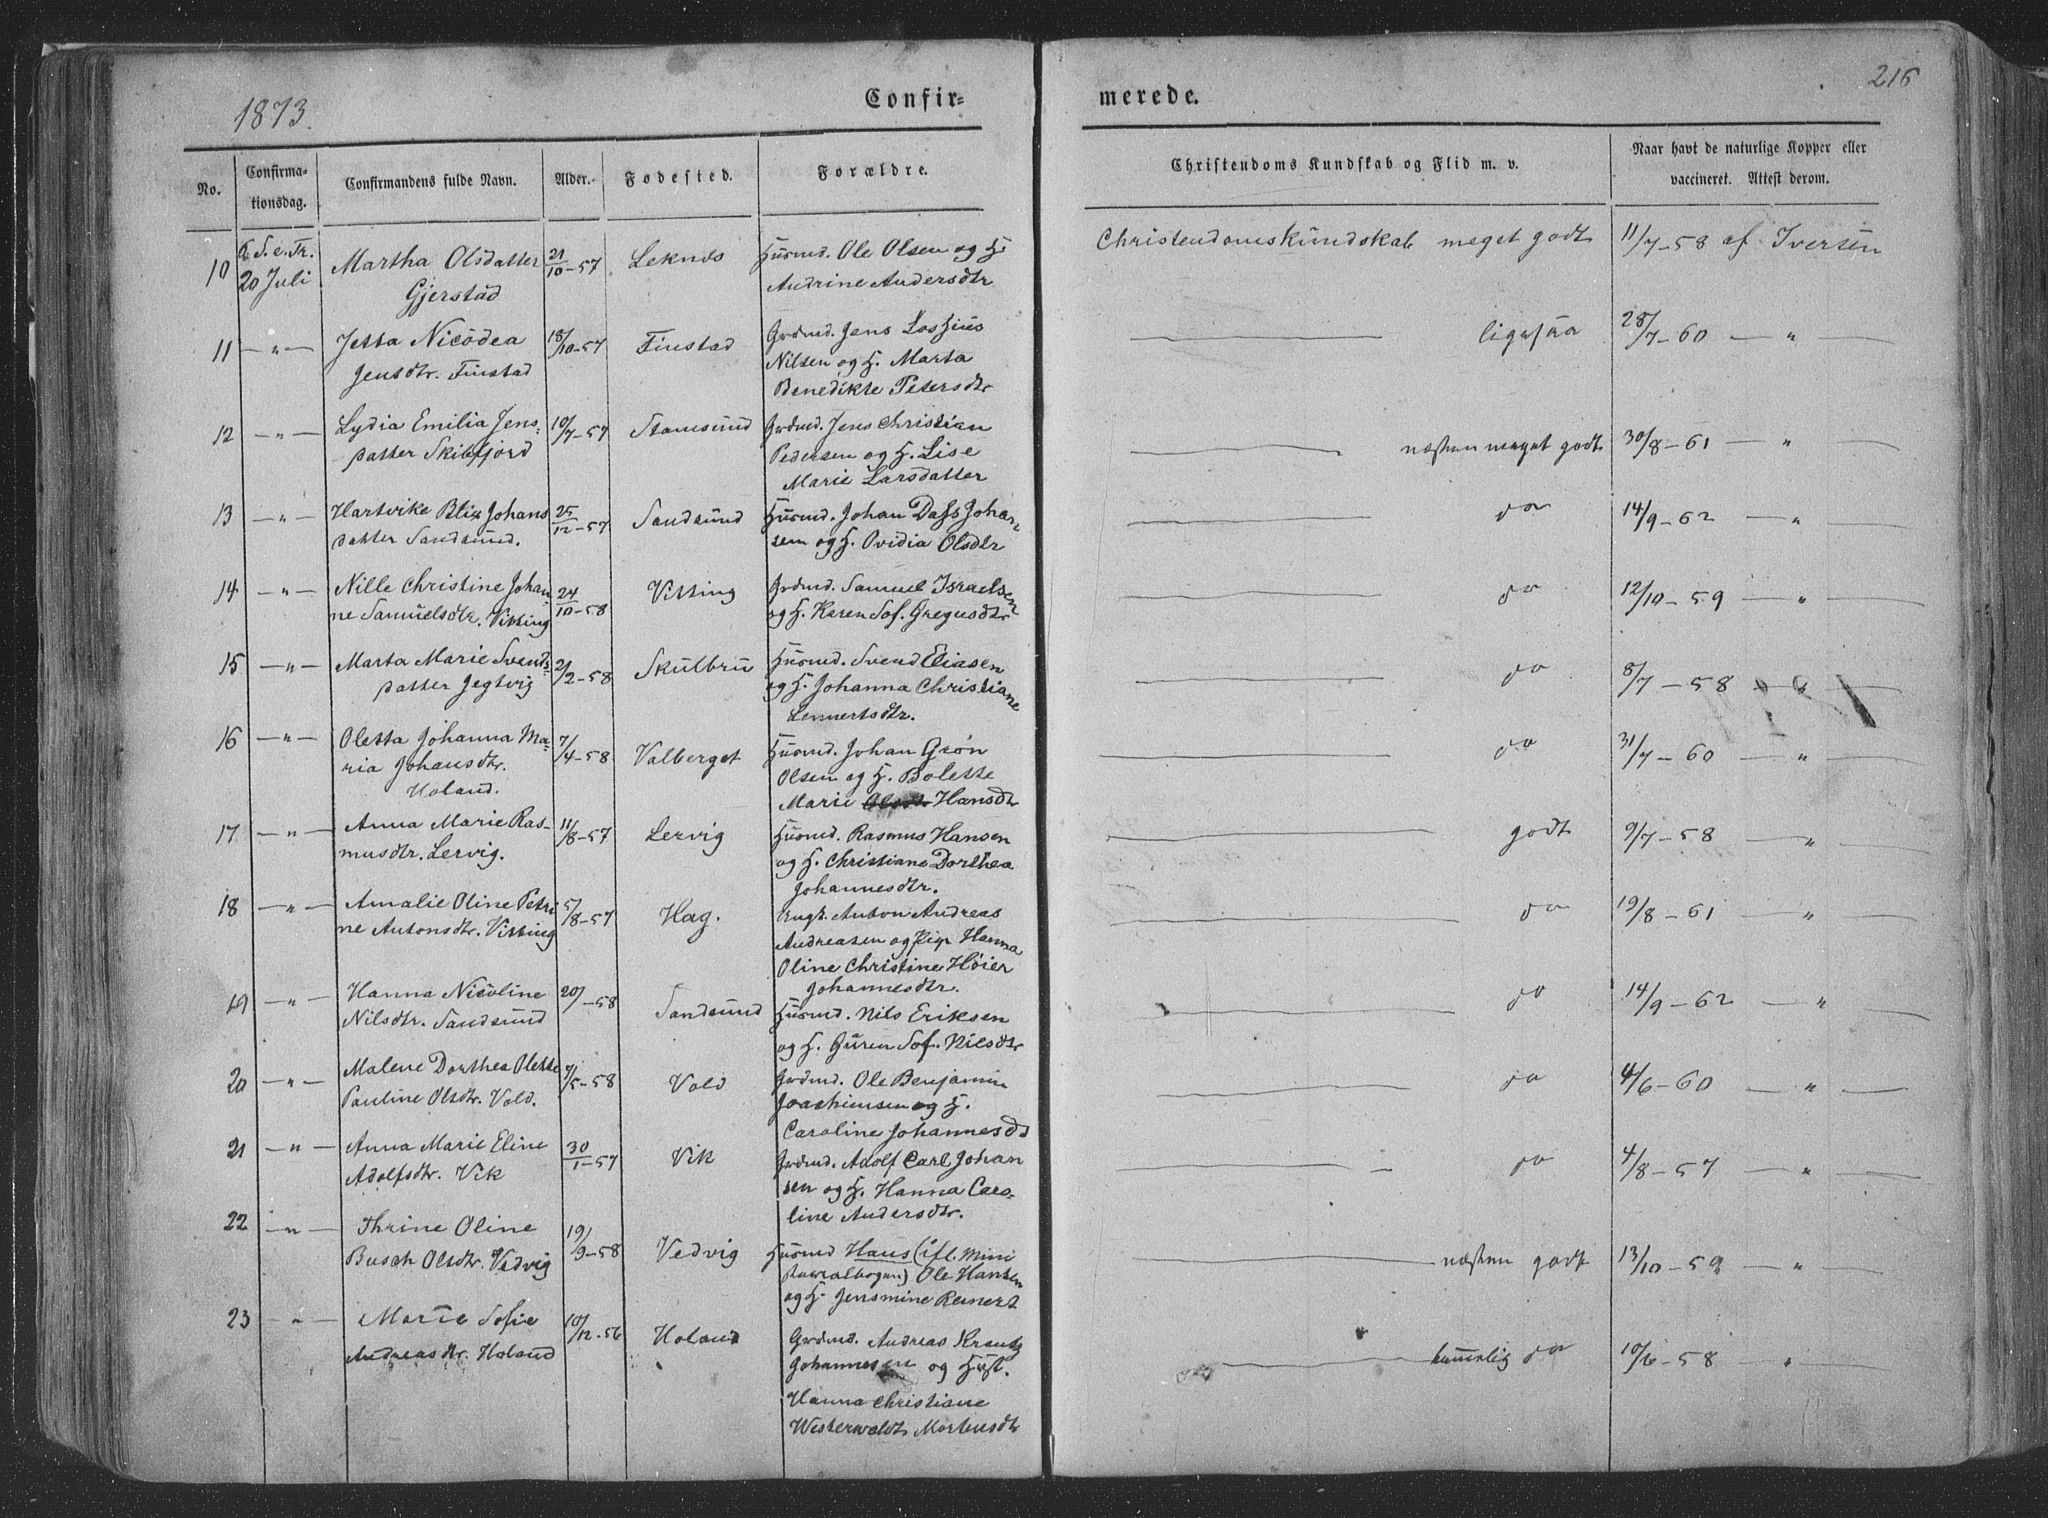 1873.
Confir-
merede.
216
No.
Confirma-
tionsdag.
Confirmandens fulde Navn.
Alder.
Fødested.
Forældre.
Christendoms Kundskab og Flid m. v.
Naar havt de naturlige Kopper eller
vaccineret. Attest derom.
10
6 S. e. Tr.
20 Juli
Martha Olsdatter
Gjerstad
21/10-57
Leknes
Husmd. Ole Olsen og H.
Andrine Andersdtr
Christendomskundskab meget godt
11/7-58 af Iversen
11 — " —
Jetta Nicodea
Jensdtr. Finstad
18/10-57
Finstad
Grdmd. Jens Losjius
Nilsen og H. Marta
Benedikte Petersdtr
ligesaa
28/7-60 — " —
12 — " —
Lydia Emilia Jens-
datter Skibfjord
10/7-57
Stamsund
Grdmd. Jens Christian
Pedersen og H. Lise
Marie Larsdatter
næsten meget godt
30/8-61 — " —
13 — " —
Hartvike Blix Johans
datter Sandsund.
25/12-57
Sandsund
Husmd. Johan Dass Johan
sen og H. Ovidia Olsdtr
do
14/9-62 — " —
14 — " —
Nille Christine Johan
ne Samuelsdtr. Vitting
24/10-58
Vitting
Grdmd. Samuel Israelsen
og H. Karen Sof. Gregusdtr
do
12/10-59 — " —
15 — " —
Marta Marie Svends-
datter Jegtvig
21/2-58
Skulbru
Husmd. Svend Eliasen
og H. Johanna Christiane
Lennertsdtr.
do
8/7-58 — " —
16 — " —
Oletta Johanna Ma-
ria Johansdtr.
Holand.
7/4-58
Valberget
Husmd. Johan Grøn
Olsen og H. Bolette
Marie Olsdtr Hansdtr
do
31/7-60 — " —
17 — " —
Anna Marie Ras-
musdtr. Lervig.
11/8-57
Lervig
Husmd. Rasmus Hansen
og H. Christiane Dorthea
Johannesdtr.
godt
9/7-58 "
18 — " —
Amalie Oline Petri
ne Antonsdtr. Vitting
5/8-57
Hag.
Ungk. Anton Andreas
Andreasen og Pige Hanna
Oline Christine Høier
Johannesdtr.
do
19/8-61 "
19 — " —
Hanna Nicoline
Nilsdtr. Sandsund
20/ -58
Sandsund
Husmd. Nils Eriksen
og H. Guren Sof. Nilsdtr
do
14/9-62 — "
20 — " —
Malene Dorthea Olette
Pauline Olsdtr. Vold.
7/5-58
Vold
Grdmd. Ole Benjamin
Joachimsen og H.
Caroline Johannesdt
do
4/6-60 — " —
21 — " —
Anna Marie Eline
Adolfsdtr. Vik
30/1-57
Vik
Grdmd. Adolf Carl Johan
sen og H. Hanna Caro-
line Andersdtr.
do
4/8-57 — " —
22 — " —
Thrine Oline
Busch Olsdtr. Vedvig
19/9-58
Vedvig
Husmd Hans (ifl. Mini
sterialbogen) Ole Hansen
og H. Jensmine Reinert
næsten godt
13/10-59 — " —
23 — " —
Marie Sofie
Andreasdtr. Holand
10/12-56
Holand
Grdmd. Andreas Krantz
Johannesen og Hust.
Hanna Christiane
Westerwaldt Mortensdtr
temmelig do
10/6-58 — " —